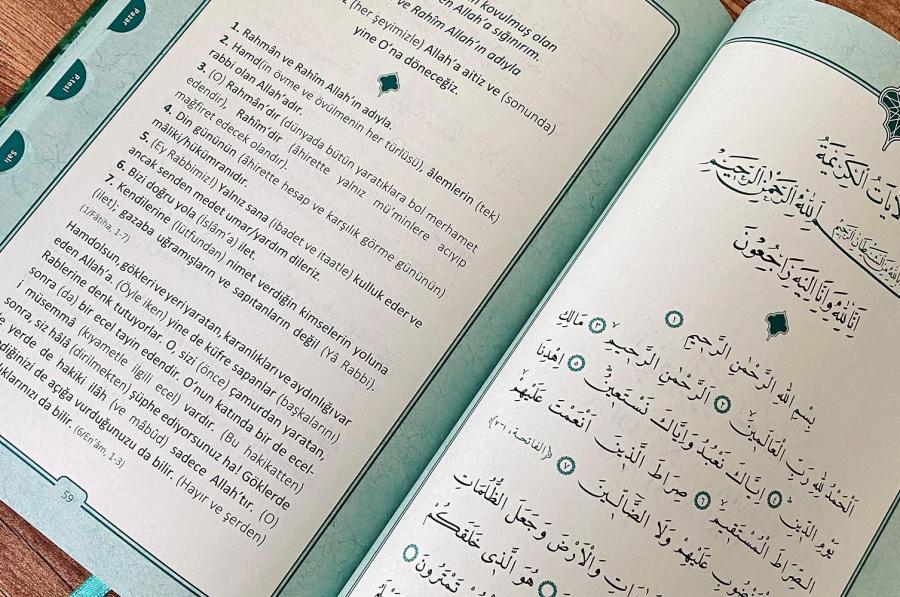 Pazar
P.tesi
Salı
kovulmuş olan
Allah'a sığınırım.
ve Rahîm Allah'ın adıyla
(her şeyimizle) Allah'a aitiz ve (sonunda)
yine O'na döneceğiz.
1. Rahmân ve Rahîm Allah'ın adıyla.
2. Hamd(in övme ve övülmenin her türlüsü), âlemlerin (tek)
rabbi olan Allah'adır.
3. (O) Rahmân'dır (dünyada bütün yaratıklara bol merhamet
edendir), Rahîm'dir (âhirette yalnız mü'minlere acıyıp
mağfiret edecek olandır).
4. Din gününün (âhirette hesap ve karşılık görme gününün)
mâliki/hükümranıdır.
5. (Ey Rabbimiz!) Yalnız sana (ibadet ve itaatle) kulluk eder ve
ancak senden medet umar/yardım dileriz.
6. Bizi doğru yola (İslâm'a) ilet.
7. Kendilerine (lütfundan) nimet verdiğin kimselerin yoluna
(ilet); gazaba uğramışların ve sapıtanların değil (Yâ Rabbi).
(1/Fâtiha, 1-7)
Hamdolsun, gökleri ve yeri yaratan, karanlıkları ve aydınlığı var
eden Allah'a. (Öyle iken) yine de küfre sapanlar (başkalarını)
Rablerine denk tutuyorlar. O, sizi (önce) çamurdan yaratan,
sonra (da) bir ecel tayin edendir. O'nun katında bir de ecel-
i müsemmâ (kıyametle ilgili ecel) vardır. (Bu hakikatten)
sonra, siz hâlâ (dirilmekten) şüphe ediyorsunuz ha! Göklerde
yerde de hakiki ilâh (ve mâbûd) sadece Allah'tır. (O)
de açığa vurduğunuzu da bilir. (Hayır ve şerden)
da bilir. (6/En'âm, 1-3)
59
الْكَرِيمَةُ
بِاللّٰهِ مِنَ الشَّيْطَانِ الرَّجِيمِ
اللّٰهِ الرَّحْمٰنِ الرَّحِيمِ
اِنَّا لِلّٰهِ وَاِنَّا اِلَيْهِ رَاجِعُونَ
بِسْمِ اللّٰهِ الرَّحْمٰنِ الرَّحِيمِ ﴿١﴾
اَلْحَمْدُ لِلّٰهِ رَبِّ الْعَالَمِينَ ﴿٢﴾ اَلرَّحْمٰنِ الرَّحِيمِ ﴿٣﴾ مَالِكِ
يَوْمِ الدِّينِ ﴿٤﴾ اِيَّاكَ نَعْبُدُ وَاِيَّاكَ نَسْتَعِينُ ﴿٥﴾ اِهْدِنَا
الصِّرَاطَ الْمُسْتَقِيمَ ﴿٦﴾ صِرَاطَ الَّذِينَ اَنْعَمْتَ عَلَيْهِمْ
عَلَيْهِمْ وَلَا الضَّالِّينَ ﴿٧﴾ (الفاتحة، ١-٧)
وَالْاَرْضَ وَجَعَلَ الظُّلُمَاتِ
هُوَ الَّذِى خَلَقَكُمْ
تَمْتَرُونَ